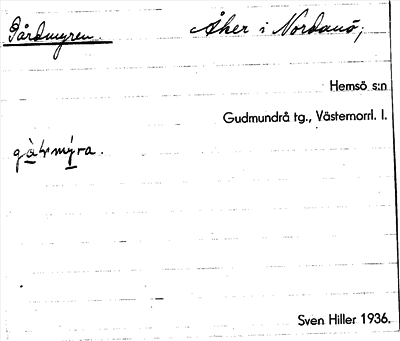 Gårdmyren. Åker i Nordanö;
Hemsö s:n
Gudmundrå tg., Västernorrl. l.
Sven Hiller 1936.